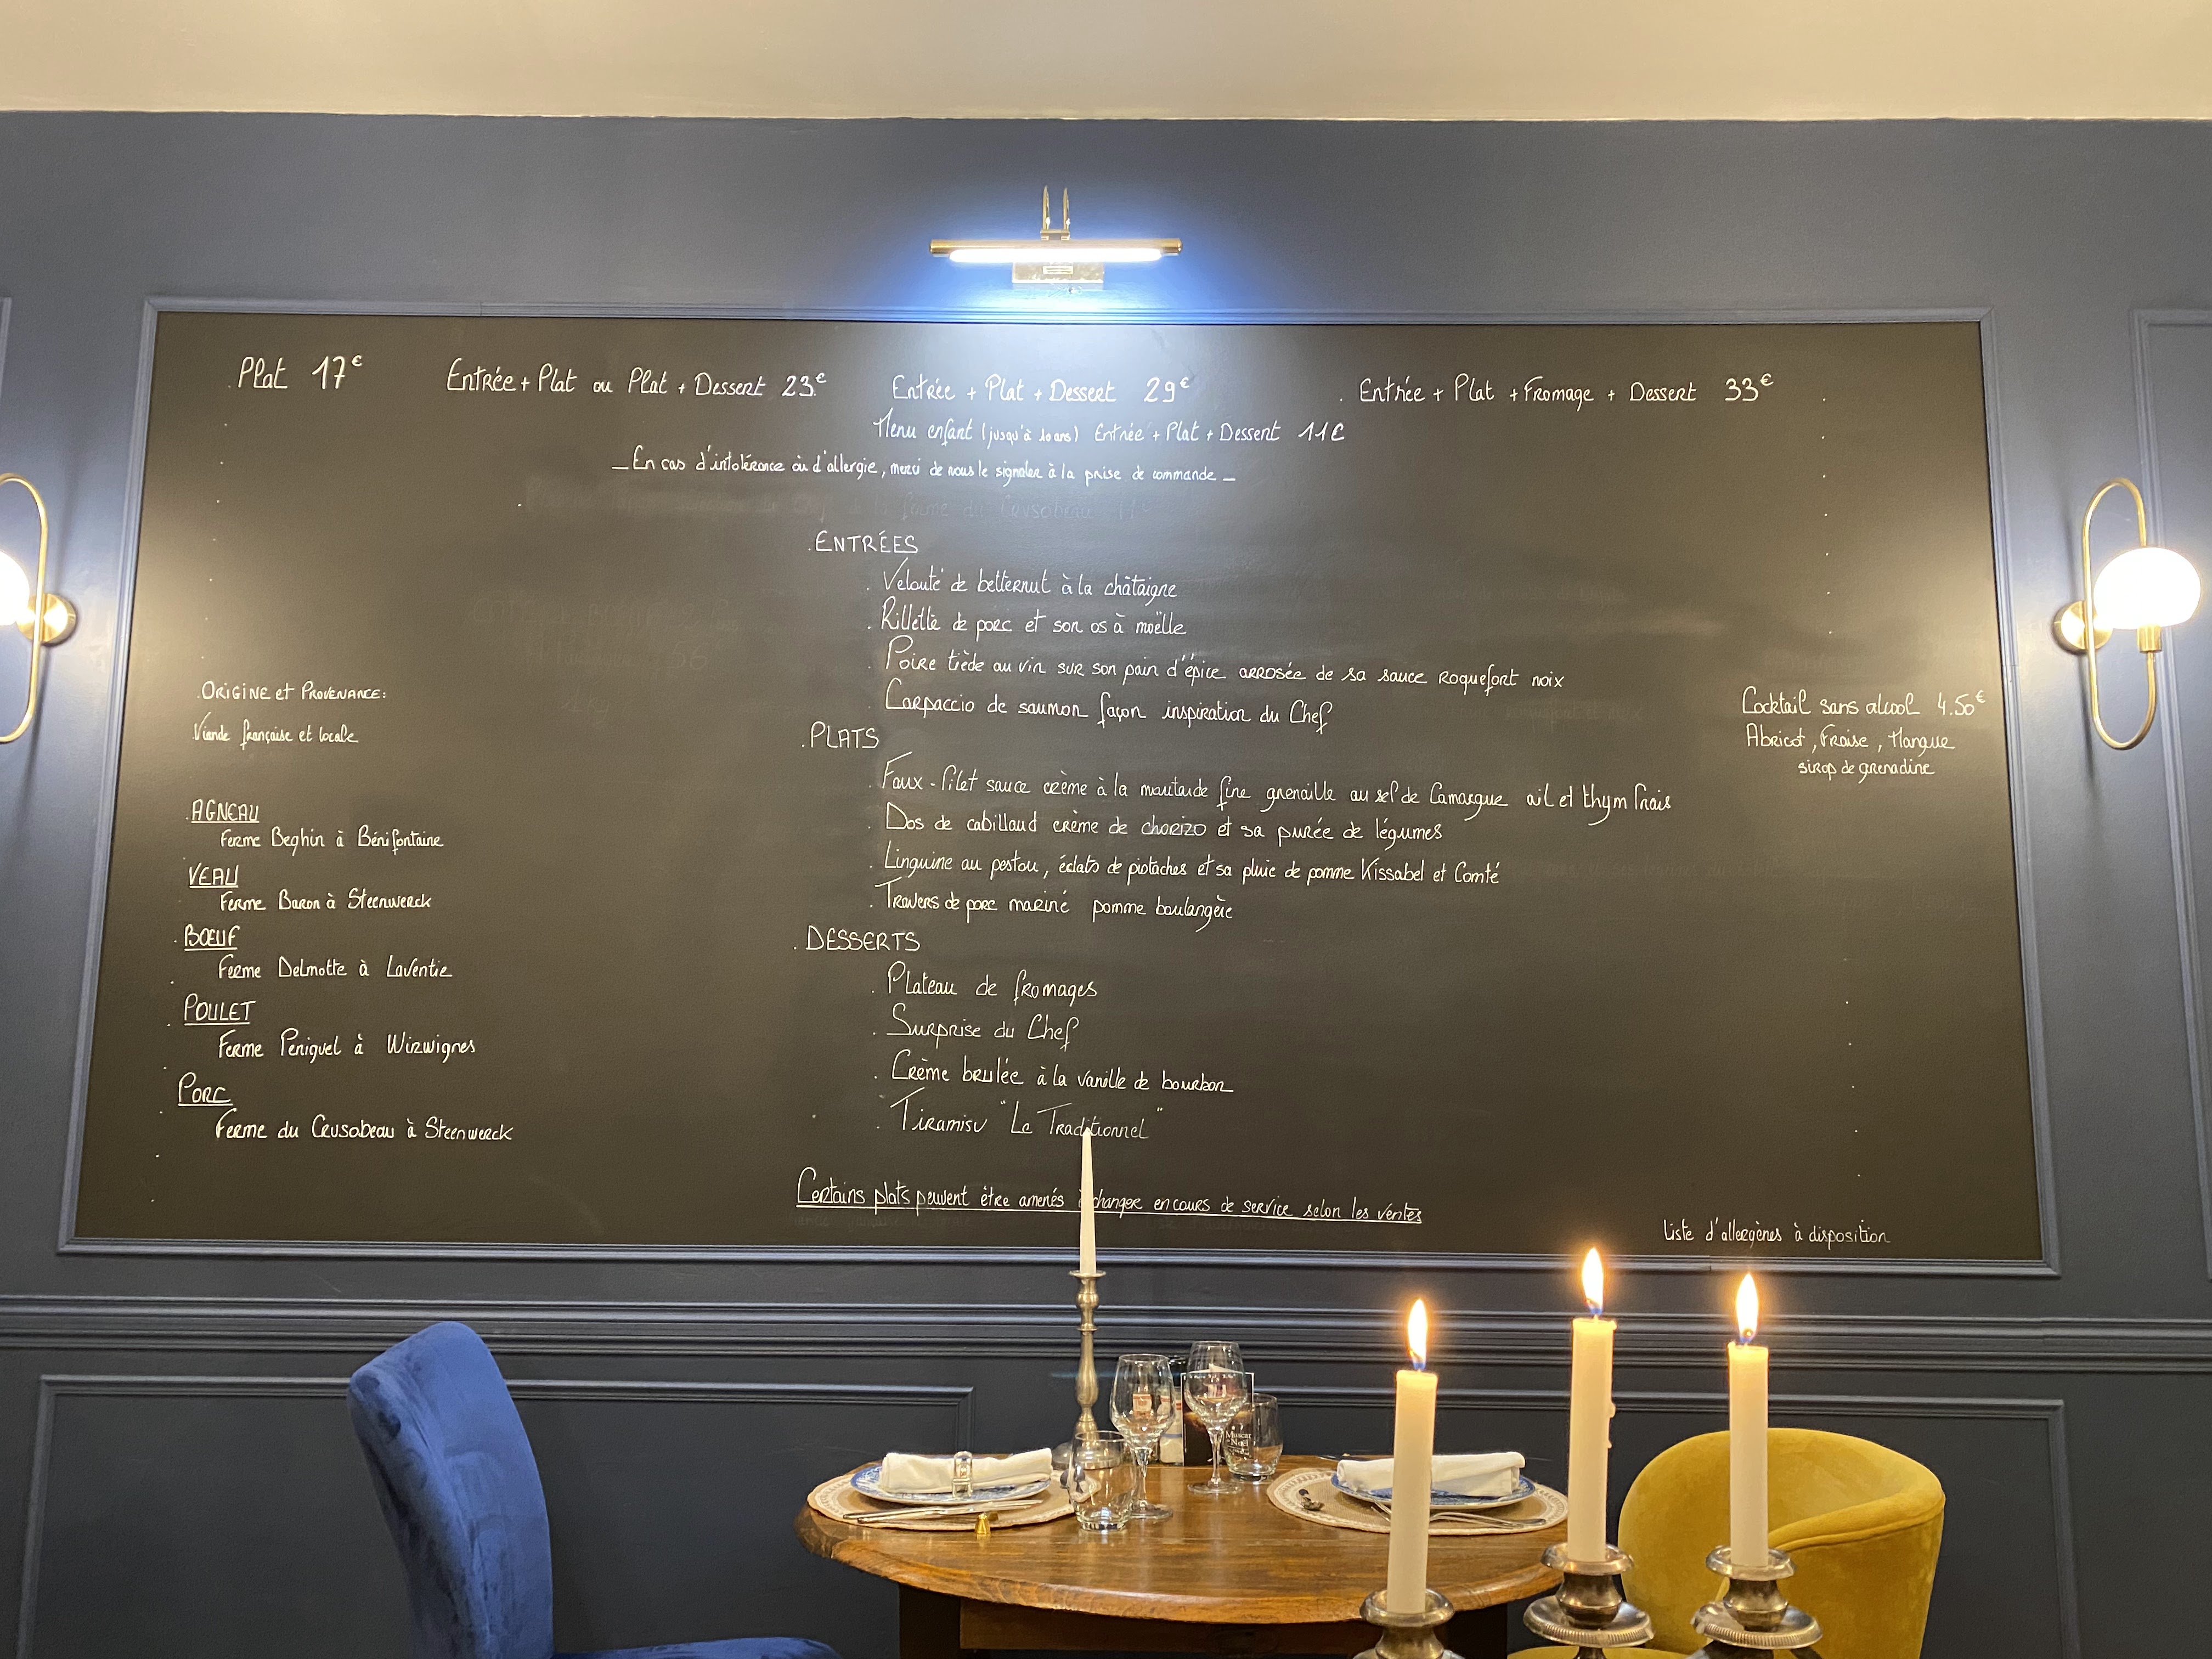 Plat 17€
Entrée + Plat ou Plat + Dessert 23€
Entrée + Plat + Dessert 29€
Entrée + Plat + Fromage + Dessert 33€
Menu enfant (jusqu'à 10 ans) Entrée + Plat + Dessert 11€
_ En cas d'intolérance ou d'allergie, merci de nous le signaler à la prise de commande _
. ENTRÉES
. Velouté de betternut à la châtaigne
. Rillette de porc et son os à moëlle
. Poire tiède au vin sur son pain d'épice arrosée de sa sauce Roquefort noix
. Carpaccio de saumon façon inspiration du Chef
. PLATS
. Faux-filet sauce crème à la moutarde fine grenaille au sel de Camargue ail et thym frais
. Dos de cabillaud crème de chorizo et sa purée de légumes
. Linguine au pestou, éclats de pistaches et sa pluie de pomme Kissabel et Comté
. Travers de porc mariné pomme boulangère
. DESSERTS
. Plateau de fromages
. Surprise du Chef
. Crème brulée à la vanille de bourbon
. Tiramisu "Le Traditionnel"
Certains plats peuvent être amenés à changer en cours de service selon les ventes
. ORIGINE et PROVENANCE:
Viande française et locale
. AGNEAU
Ferme Beghin à Bénifontaine
VEAU
Ferme Baron à Steenwerck
. BŒUF
Ferme Delmotte à Laventie
POULET
Ferme Periguel à Wirwignes
PORC
Ferme du Crusobeau à Steenwerck
Cocktail sans alcool 4.50€
Abricot, Fraise, Mangue
sirop de grenadine
Liste d'allergènes à disposition
Muscat
Noël